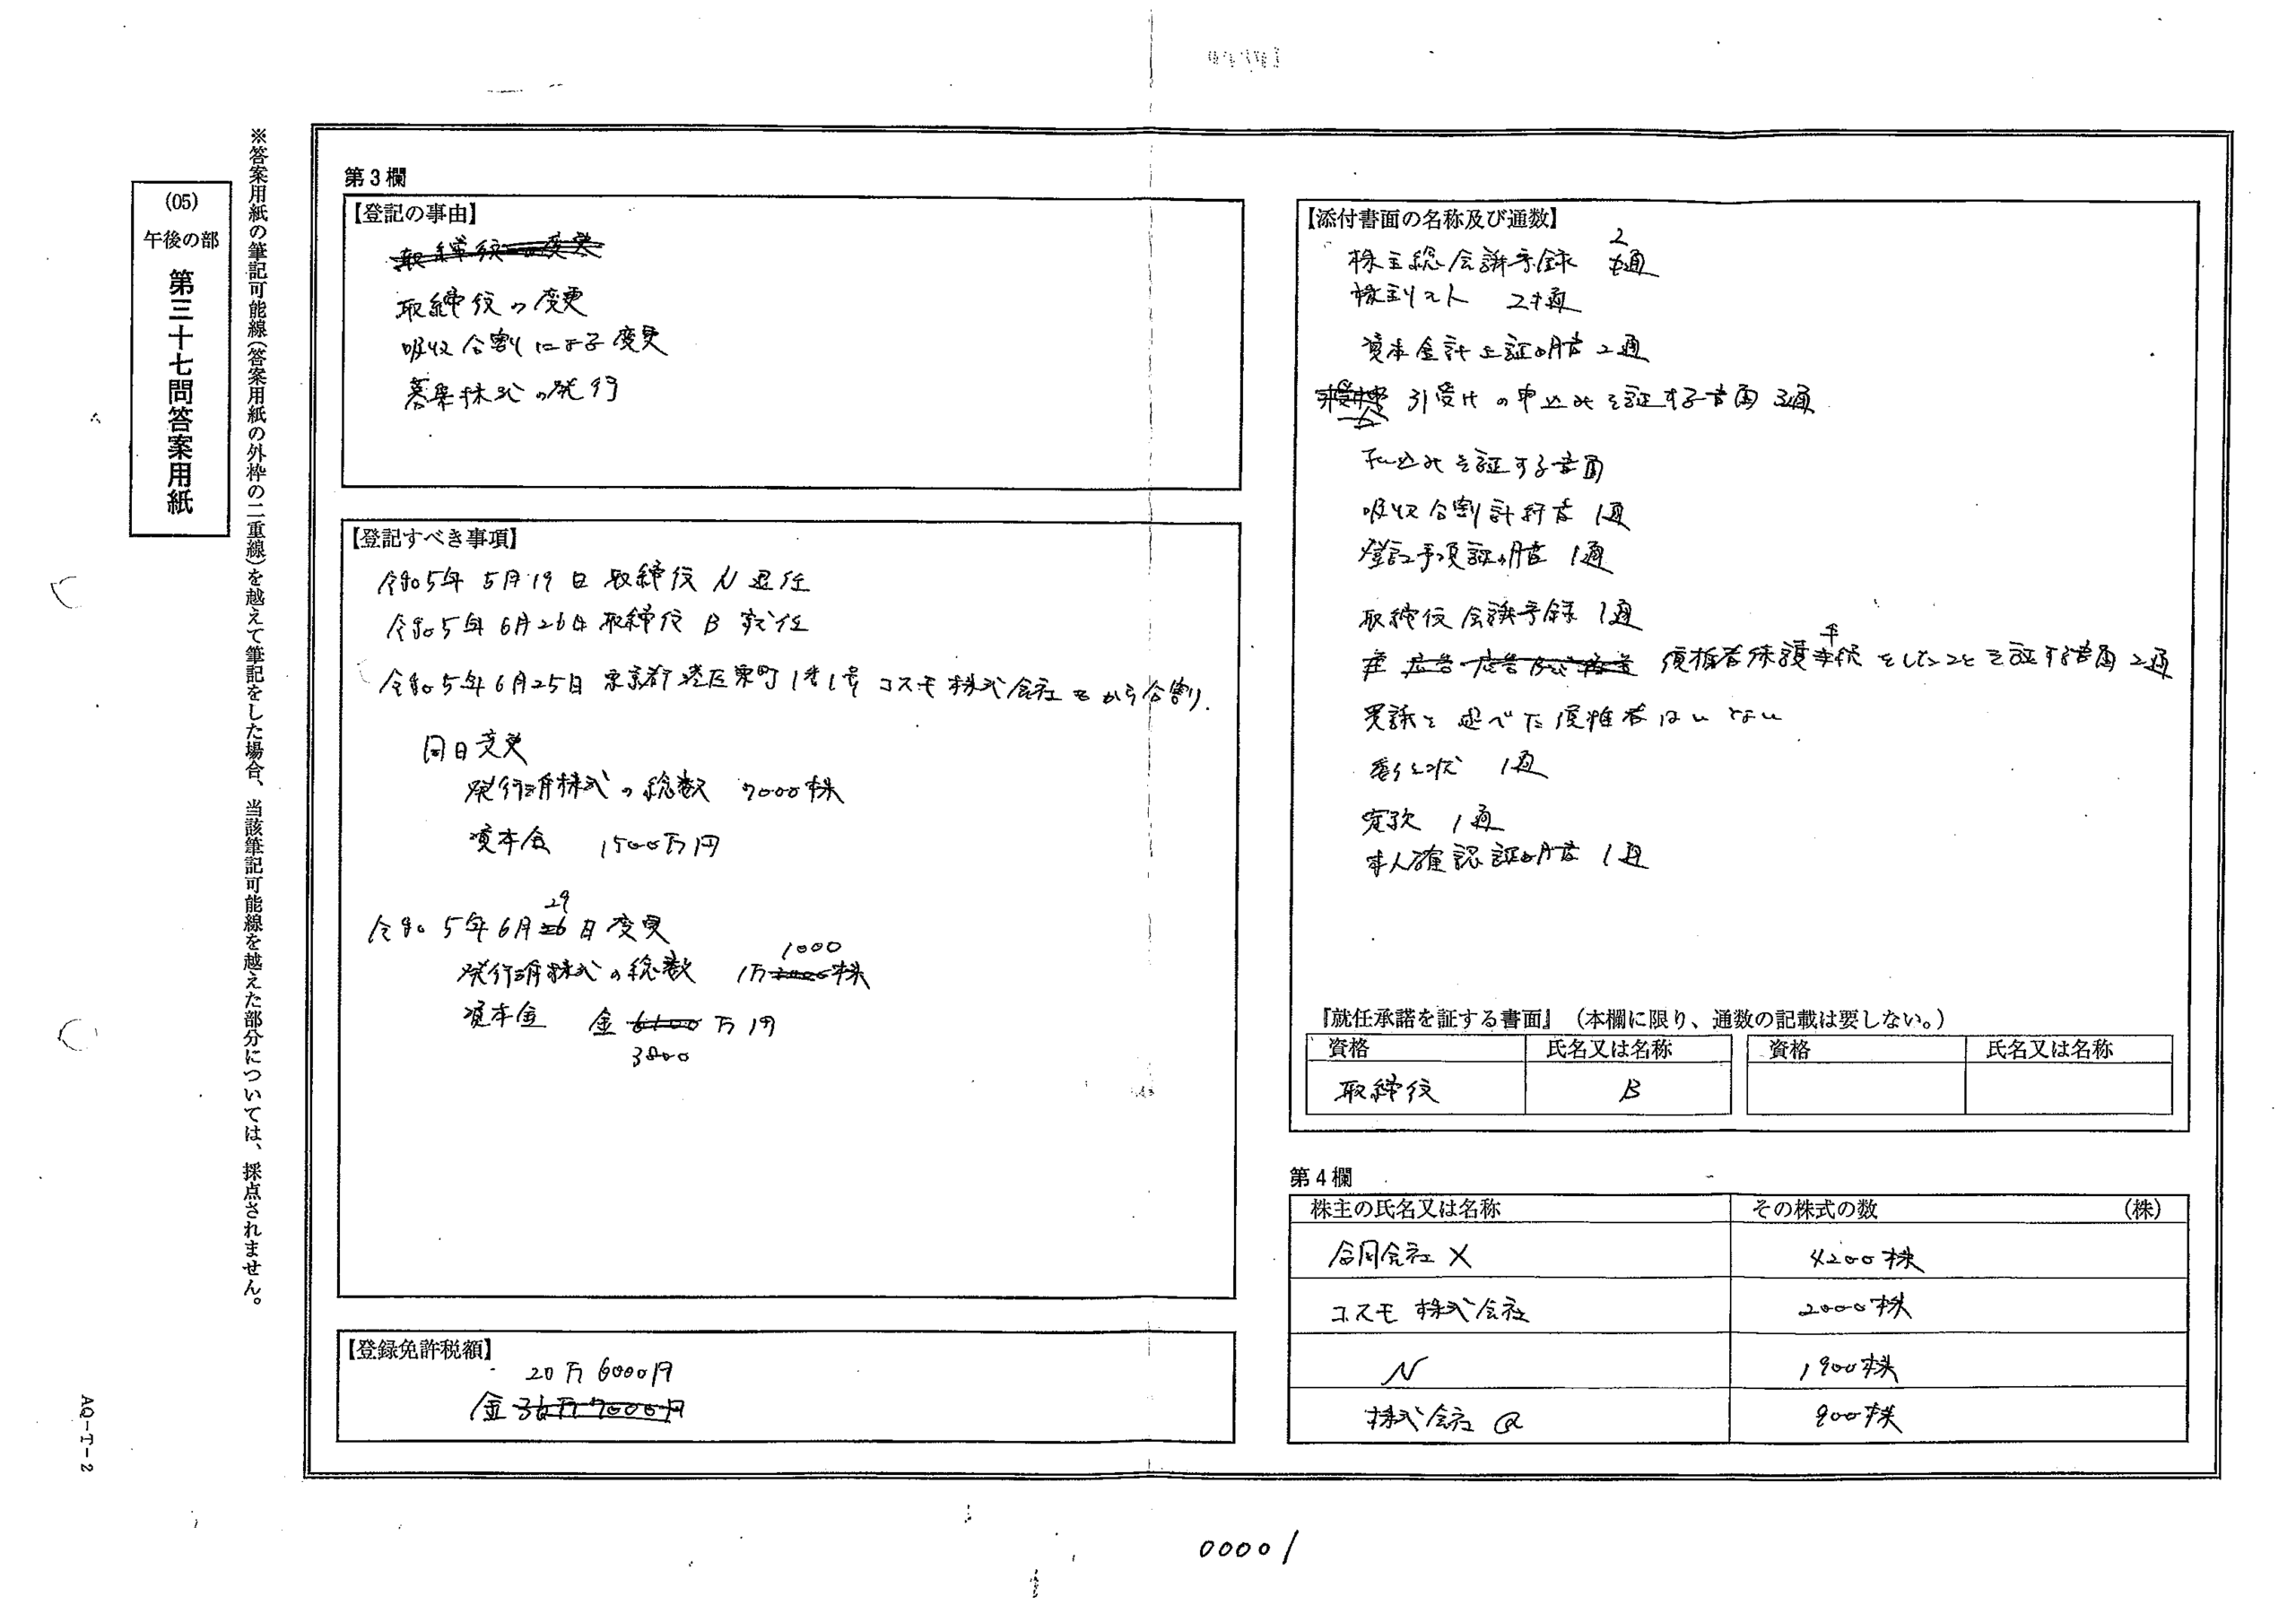 ※答案用紙の筆記可能線(答案用紙の外枠の二重線)を越えて筆記をした場合、当該筆記可能線を越えた部分については、採点されません。
(05)
午後の部
第三十七問答案用紙
第3欄
【登記の事由】
取締役の変更
取締役の変更
吸収分割による変更
募集株式の発行
【登記すべき事項】
令和5年 5月19日 取締役 N 退任
令和5年 6月26日 取締役 B 就任
令和5年6月25日 東京都港区東町1番1号 コスモ株式会社 から分割
同日変更
発行済株式の総数 7000株
資本金 1500万円
29
令和5年6月26日変更
1000
発行済株式の総数 1万2000株
資本金 金6100万円
3800
【登録免許税額】
20万6000円
金36万7000円
【添付書面の名称及び通数】
2
株主総会議事録 通
株主リスト 2通
資本金計上証明書 2通
引受けの申込みを証する書面 3通
払込みを証する書面
吸収分割計約書 1通
登記事項証明書 1通
取締役会議事録 1通
債権者保護手続をしたことを証する書面 2通
異議を述べた債権者はいない
委任状 1通
定款 1通
本人確認証明書 1通
『就任承諾を証する書面』(本欄に限り、通数の記載は要しない。)
資格 氏名又は名称 資格 氏名又は名称
取締役 B
第4欄
株主の氏名又は名称 その株式の数 (株)
合同会社X 4200株
コスモ株式会社 2000株
N 1900株
株式会社Q 900株
AQ-T-2
00001